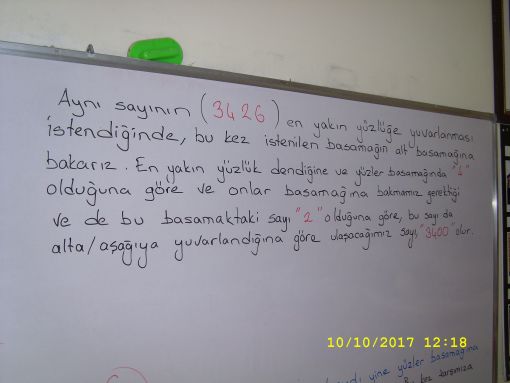 Aynı sayının (3426) en yakın yüzlüğe yuvarlanması
istendiğinde, bu kez istenilen basamağın alt basamağına
bakarız. En yakın yüzlük dendiğine ve yüzler basamağında "4"
olduğuna göre ve onlar basamağına bakmamız gerektiği
ve de bu basamaktaki sayı "2" olduğuna göre, bu sayı da
alta/aşağıya yuvarlandığına göre ulaşacağımız sayı, "3400" olur.
10/10/2017 12:18
yine yüzler basamağına
kez tarsımıza